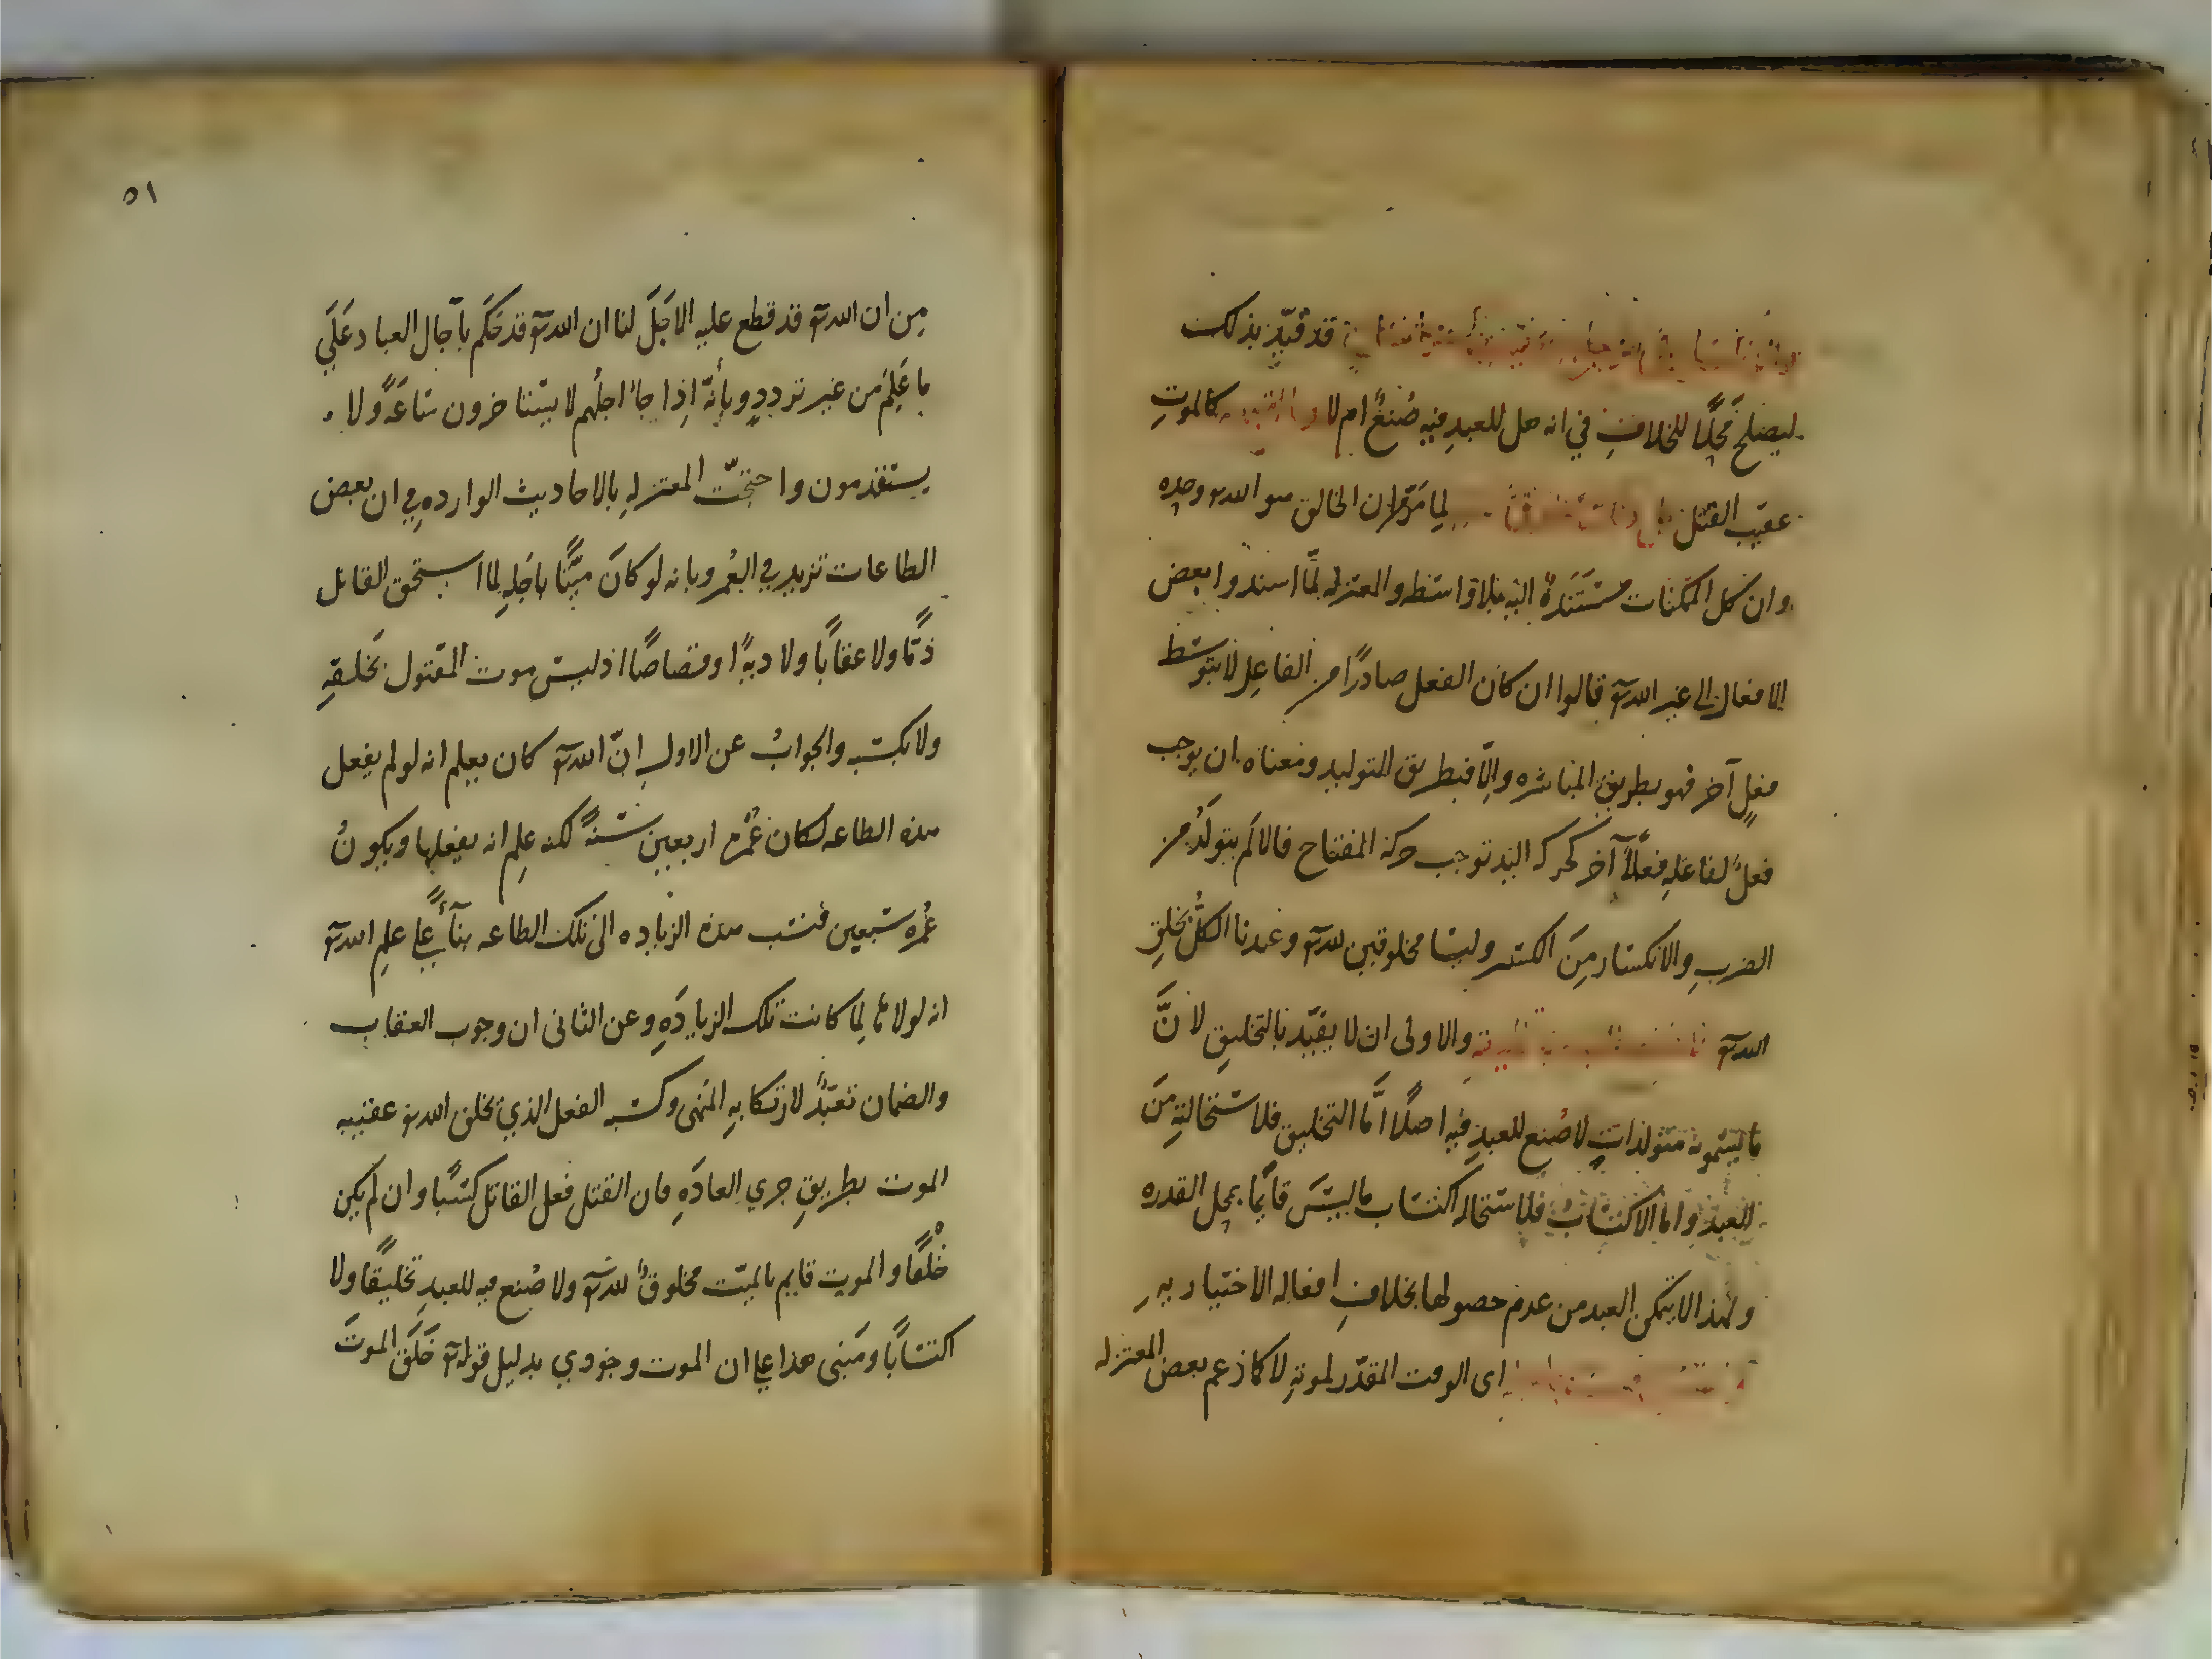 قد قيّد بذلك
ليصلح محلًّا للخلاف في انه هل للعبد فيه صُنعٌ ام لا كالموتِ
عقيب القتل لما مرّ من ان الخالق هو الله وحده
وان كل الممكنات مستندةٌ اليه بلا واسطه والمعتزله لمّا اسندوا بعض
الافعال الى غير الله تع قالوا ان كان الفعل صادرًا من الفاعل لا بتوسّط
فعلٍ آخر فهو بطريق المباشره والّا فبطريق التوليد ومعناه ان يوجب
فعلٌ لفاعله فعلًا آخر كحركه اليد توجب حركه المفتاح فالالم يتولّد من
الضربِ والانكسار مِنَ الكسر وليسا مخلوقين لله تع وعندنا الكلُّ بخلقِ
الله تع والاولى ان لا يقيّد بالتخليق لانَّ
ما يسمونه متولداتٍ لا صُنع للعبد فيه اصلًا امّا التخليق فلاستحالتهِ مِنَ
العبد واما الاكتسابُ فلاستحاله اكتساب ما ليسَ قايمًا بمحل القدره
ولهذا لا يتمكن العبد من عدم حصولها بخلافِ افعاله الاختياريهِ
اى الوقت المقدّر لموتهِ لا كما زعم بعض المعتزله
٥١
مِن ان الله تع قد قطع عليه الاجَلَ لنا ان الله تع قد حَكَم بآجال العباد عَلَي
ما عَلِمَ من غير تردد وبأنّه اذا جآ اجلُهم لا يستاخرون سَاعَةً ولا
يستقدمون واحتجّت المعتزله بالاحاديث الوارده في ان بعض
الطاعات تزيد في العُمر وبانه لو كانَ ميّتًا باجَلِهِ لما استحق القاتل
ذمًّا ولا عقابًا ولا ديةً او قصاصًا اذ ليس موت المقتول بخلقهِ
ولا بكسبه والجوابُ عن الاول انّ الله تع كان يعلم انه لو لم يفعل
هذه الطاعه لكان عُمُره اربعين سنةً لكنه عَلِم انه يفعلها ويكونُ
عُمُره سبعين فنسب هذه الزياده الى تلك الطاعه بنآءً علي علم الله تع
انه لولاها لما كانت تلك الزيادَهِ وعن الثانى ان وجوب العقاب
والضمان تعبّدٌ لارتكابهِ المنهى وكسبه الفعل الذي يخلق الله تع عقيبه
الموت بطريقِ جري العادَهِ فان القتل فعل القاتل كسبًا وان لم يكن
خلقًا والموت قايم بالميّت مخلوقٌ لله تع ولا صُنع فيه للعبدِ تخليقًا ولا
اكتسابًا ومَبنى هذا علي ان الموت وجودي بدليل قوله تع خَلَقَ الموتَ